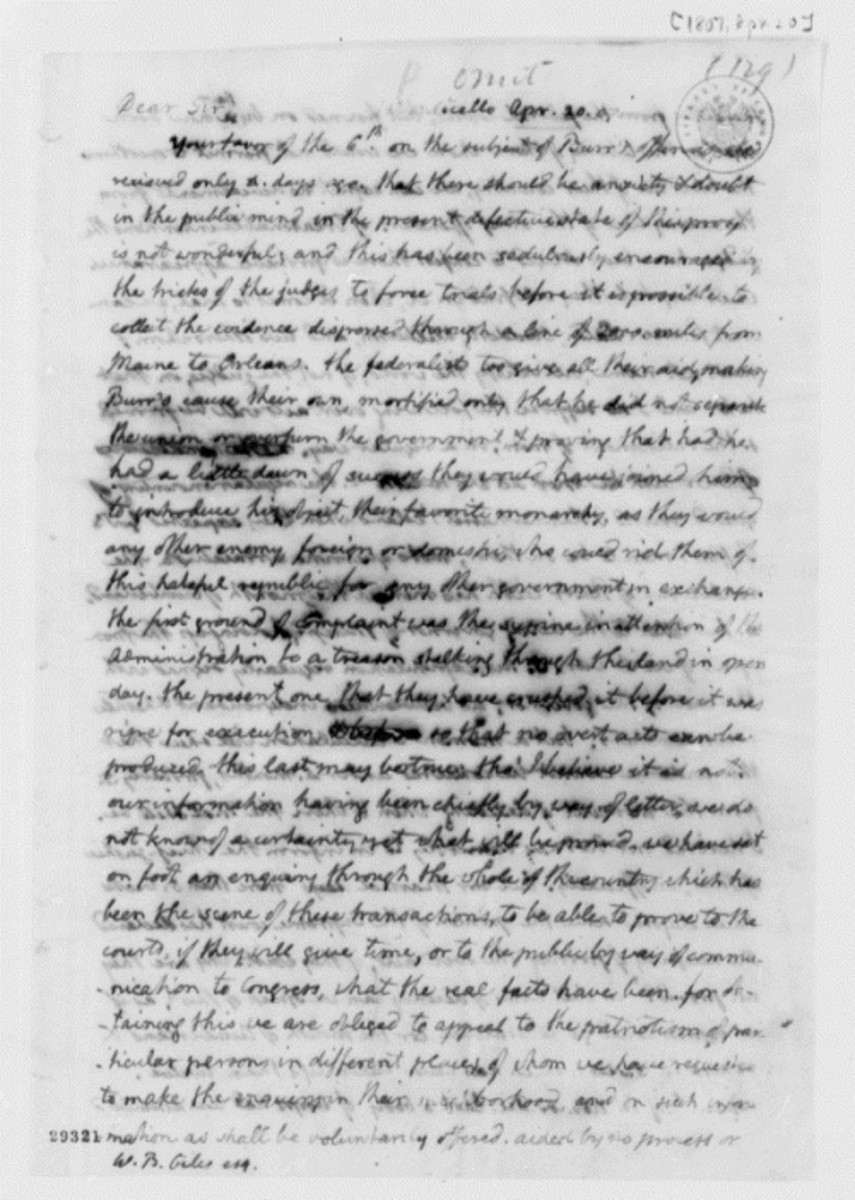 [1807, Apr. 20]
omit
(129)
Dear Sir
'cello Apr. 20. 07
Your favor of the 6th. on the subject of Burr's offences was
recieved only 4. days ago. that there should be anxiety & doubt
in the public mind in the present defective state of the proof
is not wonderful; and this has been sedulously encouraged by
the tricks of the judges to force trials before it is possible to
collect the evidence dispersed through a line of 2000. miles from
Maine to Orleans. the federalists too give all their aid, making
Burr's cause their own, mortified only that he did not separate
the union or overturn the government & proving that had he
had a little dawn of success they would have joined him
to introduce his object, their favorite monarchy, as they would
any other enemy, foreign or domestic, who could rid them of
this hateful republic for any other government in exchange.
the first ground of complaint was the supine inattention of the
administration to a treason stalking through the land in open
day. the present one that they have crushed it before it was
ripe for execution so that no overt acts can be
produced. this last may be true, tho' I believe it is not.
our information having been chiefly by way of letter, we do
not know of a certainty yet what will be proved. we have set
on foot an enquiry through the whole of the country which has
been the scene of these transactions, to be able to prove to the
courts, if they will give time, or to the public by way of commu-
-nication to Congress, what the real facts have been. for ob-
-taining this we are obliged to appeal to the patriotism of par-
-ticular persons in different places, of whom we have requested
to make the enquiry in their neighborhood, and on such infor-
29321 mation as shall be voluntarily offered. aided by no process or
W. B. Giles esq.